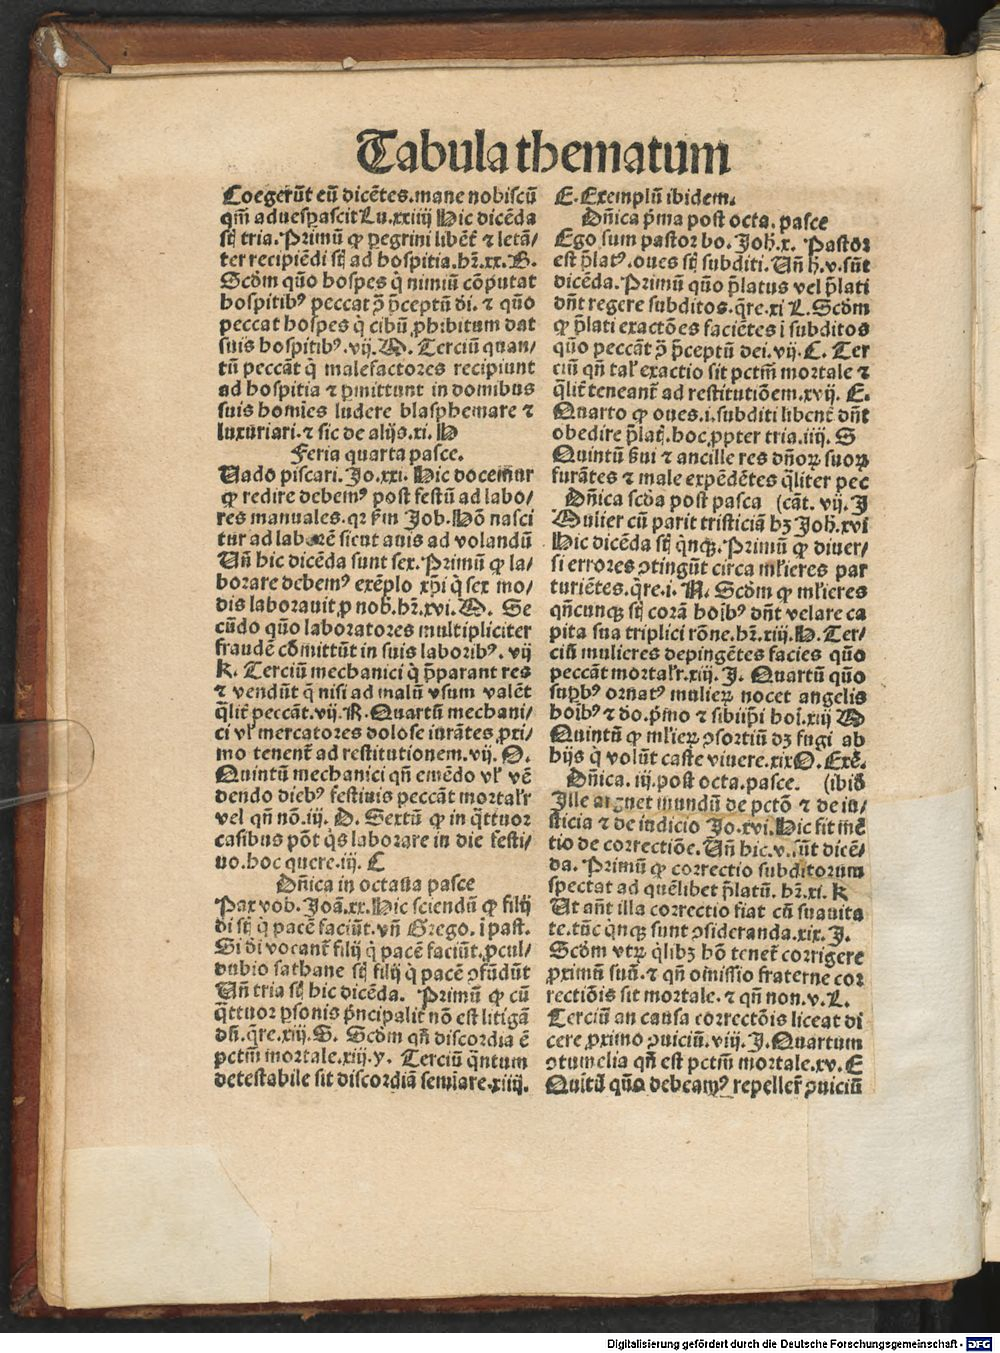 Tabula thematum
Coegerūt eū dicētes.mane nobiscū
qm̄ aduesꝑascit Lu.xxiiij Hic dicēda
sūt tria. Primū ꝙ ꝑegrini libēt ⁊ letā/
ter recipiēdi sūt ad hospitia.hr̄.xx. B.
Scd̓m quō hospes q̇ nimiū cōputat
hospitibꝰ peccat ꝯ p̄ceptū di. ⁊ quō
peccat hospes q̇ cibū ꝓhibitum dat
suis hospitibꝰ.vij. M. Terciū quan/
tū peccāt q̇ malefactores recipiunt
ad hospitia ⁊ ꝑmittunt in domibus
suis homīes ludere blasphemare ⁊
luxuriari.⁊ sic de alijs.xi. H
Feria quarta pasce.
Uado piscari. Jo.xxi. Hic docemur
ꝙ redire debemꝰ post festū ad labo/
res manuales.qꝛ ẜm Job. Hō nasci
tur ad laborē sicut auis ad volandū
Un̄ hic dicēda sunt sex. Primū ꝙ la/
borare debemꝰ exēplo xp̄i q̇ sex mo/
dis laborauit ꝓ nob̄.hr̄.xvi. M. Se
cūdo quō laboratores multipliciter
fraudē cōmittūt in suis laboribꝰ. vij
K. Terciū mechanici q̇ p̄parant res
⁊ vendūt q̇ nisi ad malū vsum valēt
q̄lit̄ peccāt.vij. R. Quartū mechani/
ci vl̓ mercatores dolose iurātes ꝓxi/
mo tenent̄ ad restitutionem.vij. O.
Quintū mechanici qn̄ emēdo vl̓ vē
dendo diebꝰ festiuis peccāt mortal̓r
vel qn̄ nō.iij. D. Sextū ꝙ in q̄ttuor
casibus pōt q̇s laborare in die festi/
uo.hoc quere.iij. C
Dn̄ica in octaua pasce
Pax vob. Joā.xx. Hic sciendū ꝙ filij
di sūt q̇ pacē faciūt.vn̄ Grego. i past.
Si di vocant̄ filij q̇ pacē faciūt, ꝓcul/
dubio sathane sūt filij q̇ pacē ꝯfūdūt
Un̄ tria sūt hic dicēda. Primū ꝙ cū
q̄ttuor ꝑsonis pr̄ncipalit̄ nō est litigā
dū.q̄re.xiij. S. Scd̓m qn̄ discordia ē
pctm̄ mortale.xiij.y. Terciū q̄ntum
detestabile sit discordiā semiare.xiiij.
E. Exemplū ibidem.
Dn̄ica p̄ma post octa. pasce
Ego sum pastor bo. Joh̄.x. Pastor
est p̄latꝰ.oues sūt subditi. Un̄ h̄.v.sūt
dicēda. Primū quō p̄latus vel p̄lati
dn̄t regere subditos.q̄re.xi L. Scd̓m
ꝙ p̄lati exactōes faciētes i subditos
quō peccāt ꝯ p̄ceptū dei.vij. C. Ter
ciū qn̄ tal̓ exactio sit pctm̄ mortale ⁊
q̄lit̄ teneant̄ ad restitutiōem.xvij. E.
Quarto ꝙ oues.i.subditi libent̄ dn̄t
obedire p̄latꝭ.hoc ꝓpter tria.iiij. S
Quintū ẜui ⁊ ancille res dn̄oꝝ suoꝝ
furātes ⁊ male expēdētes q̄liter pec
Dn̄ica scda post pasca (cāt. vij. J
Mulier cū parit tristiciā hꝫ Joh̄.xvi
Hic dicēda sūt q̄nqꝫ. Primū ꝙ diuer/
si errores ꝯtingūt circa ml̓ieres par
turiētes.q̄re.i. N. Scd̓m ꝙ ml̓ieres
qn̄cunqꝫ sūt corā hoībꝰ dn̄t velare ca
pita sua triplici rōne.hr̄.xiij. H. Ter/
ciū mulieres depingētes facies quō
peccāt mortal̓r.xiij. J. Quartū quō
suꝑbꝰ ornatꝰ mulieꝝ nocet angelis
hoībꝰ ⁊ do.p̄mo ⁊ sibiip̄i hoī.xiij M
Quintū ꝙ ml̓ieꝝ ꝯsortiū dꝫ fugi ab
hijs q̇ volūt caste viuere.xix O. Exē.
Dn̄ica. iij.post octa.pasce. (ibid̄
Ille arguet mundū de pctō ⁊ de iu/
sticia ⁊ de iudicio Jo.xvi. Hic fit mē
tio de correctiōe. Un̄ hic.v.sūt dicē/
da. Primū ꝙ correctio subditorum
spectat ad quēlibet p̄latū. hr̄.xi. K
Ut an̄t illa correctio fiat cū suauita
te.tūc q̄nqꝫ sunt ꝯsideranda.xix. J.
Scd̓m vtꝝ q̇libꝫ hō tenet̄ corrigere
ꝓximū suū.⁊ qn̄ omissio fraterne cor
rectiōis sit mortale.⁊ qn̄ non.v. L.
Terciū an causa correctōis liceat di
cere ꝓximo ꝯuiciū.viij. J. Quartum
ꝯtumelia qn̄ est pctm̄ mortale.xv. E
Quitū quō debeamꝰ repeller̄ ꝯuiciū
Digitalisierung gefördert durch die Deutsche Forschungsgemeinschaft - DFG